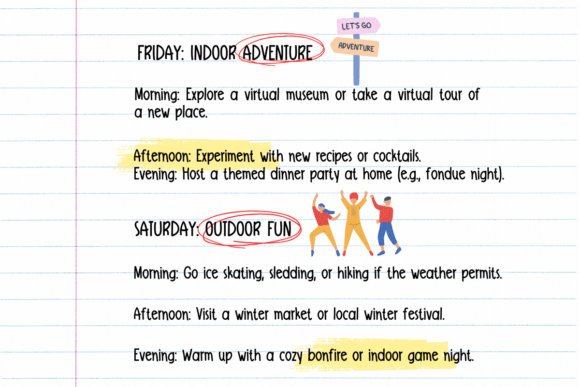 LET'S GO
ADVENTURE
FRIDAY: INDOOR ADVENTURE
Morning: Explore a virtual museum or take a virtual tour of
a new place.
Afternoon: Experiment with new recipes or cocktails.
Evening: Host a themed dinner party at home (e.g., fondue night).
SATURDAY: OUTDOOR FUN
Morning: Go ice skating, sledding, or hiking if the weather permits.
Afternoon: Visit a winter market or local winter festival.
Evening: Warm up with a cozy bonfire or indoor game night.